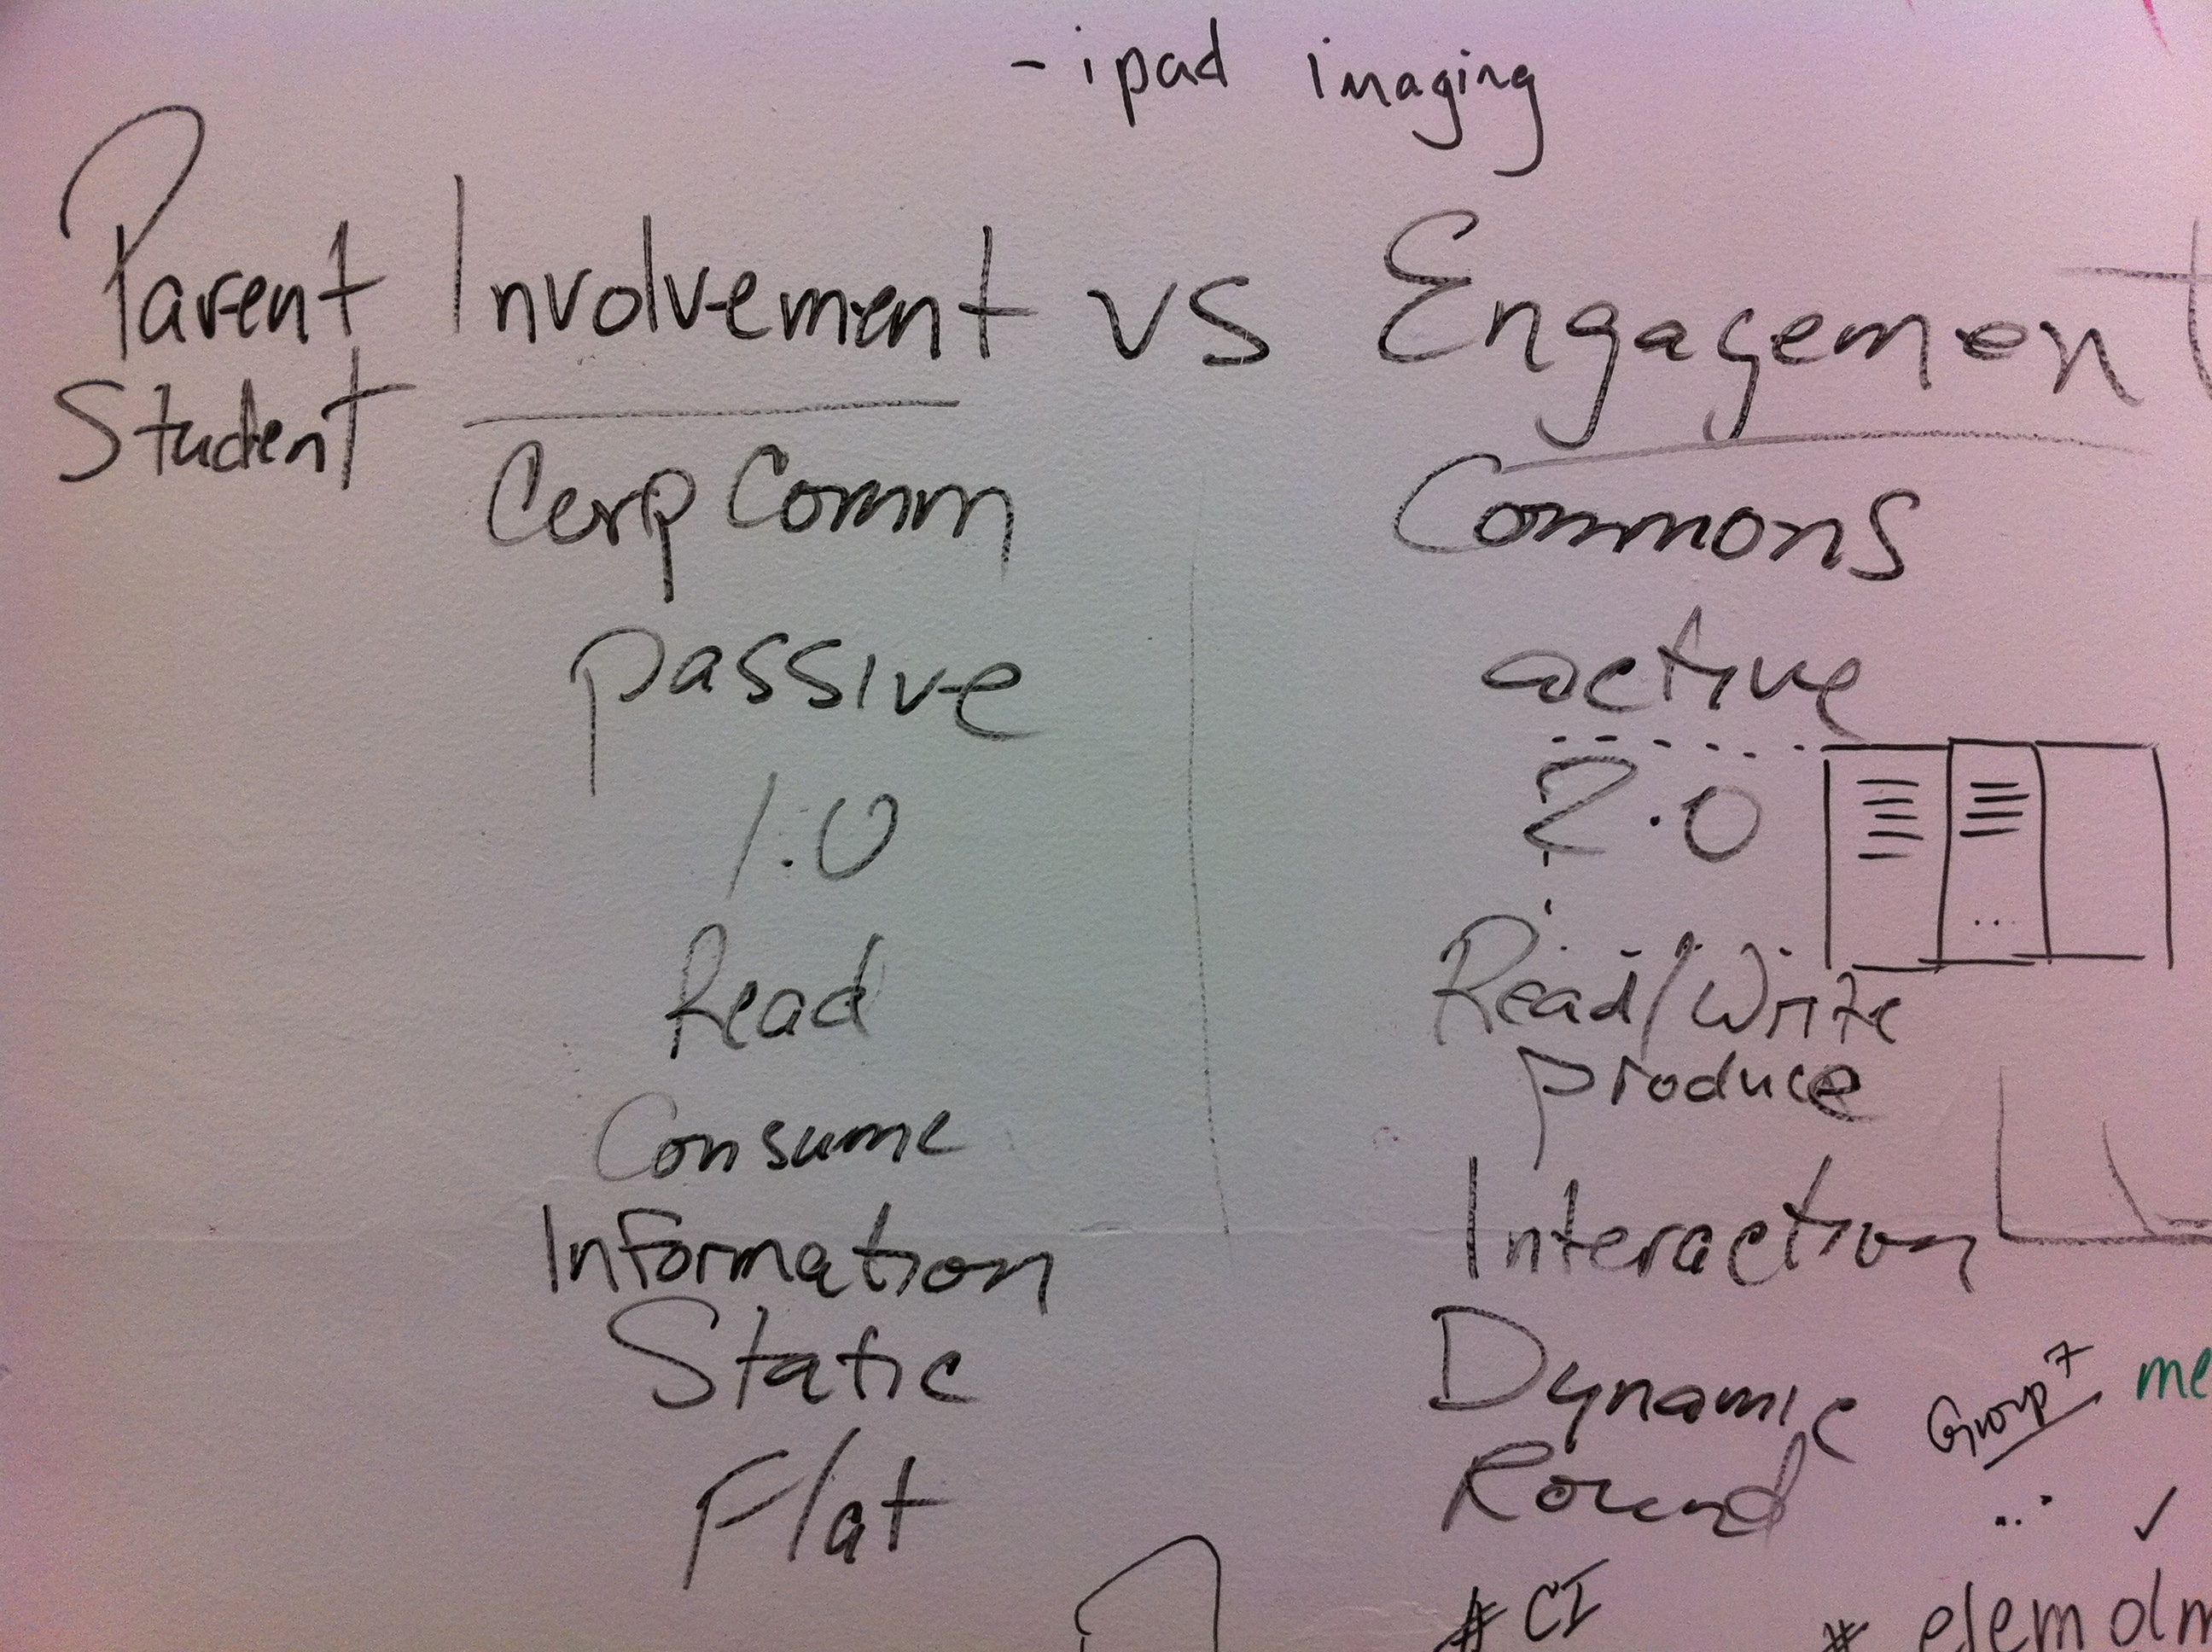 - ipad imaging
Parent Involvement vs Engagement
Student
Corp Comm Commons
passive active
1.0 2.0
Read Read/Write
produce
Consume
Information Interaction
Static Dynamic
Group 7 me
Flat Round
# CI # elem